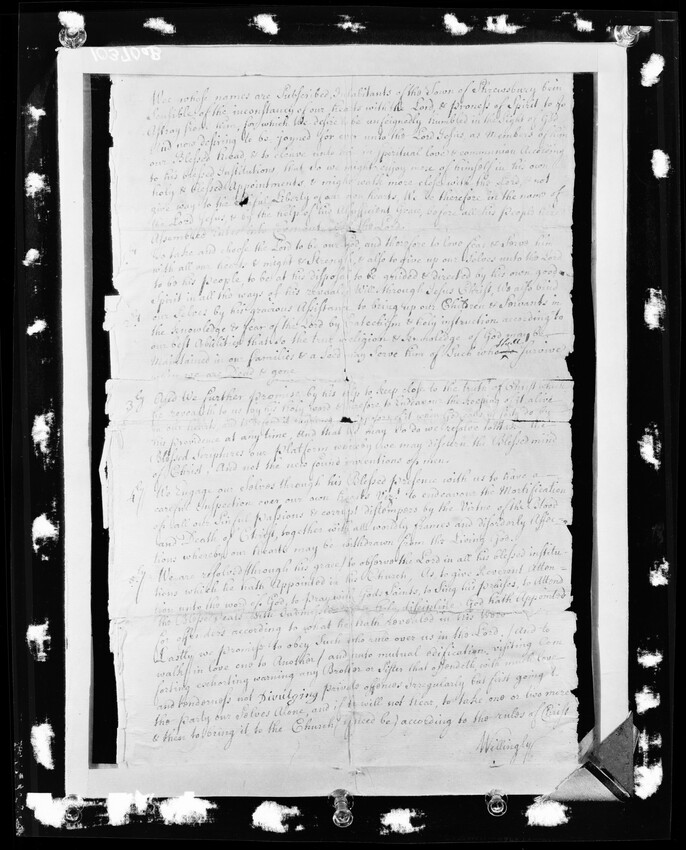 Wee whose names are Subscribed Inhabitants of the Town of Shrewsbury bein
Sensible of the inconstancy of our hearts with the Lord, & proness of Spirit to go
Astray from him, for which We desire to be unfeignedly Humbled in the sight of God
And now desiring to be joyned for ever unto the Lord Jesus as Members of him
our Blessed Head, & to cleave unto him in spiritual love & communion According
to his blessed Institutions that so we might enjoy more of himself in his own
holy & blessed Appointments, & might walk more close with the Lord, & not
give way to the sinful Liberty of our own hearts. We do therefore in the name of
the Lord Jesus & by the help of his Assistant Grace, before all his People here
Assembled Enter into Covenant with the Lord
To take and choose the Lord to be our God, and therefore to love fear & serve him
with all our hearts & might & Strength, & also to give up our Selves unto the Lord
to be his people, to be at his disposal & to be guided & directed by his own good
Spirit in all the ways of his Revealed Will through Jesus Christ. We also bind
our Selves by his gracious Assistance to bring up our Children & Servants in
the Knowledge & fear of the Lord by Catechism & holy instruction according to
our best Ability & that so the true religion & Knowledge of God may be
Maintained in our families & a Seed may Serve him of Such who shall survive
are Dead & gone
3ly And We further promise by his help to keep close to the truth of Christ which
be revealed to us by his holy Word & therefore to Endeavour the keeping of it alive
in our hearts, and to defend it against
his providence at any time, And that we may so do we resolve to take the
Blessed Scriptures our Platform whereby we may discern the Blessed mind
of Christ, And not the new found inventions of men.
4ly We Engage our Selves through his Blessed presence with us to have a
careful Inspection over our own hearts viz. to endeavour the Mortification
of all our Sinful passions & corrupt distempers by the Virtue of the Blood
and Death of Christ, together with all worldly frames and disorderly Affec-
tions whereby our hearts may be withdrawn from the Living God.
5ly We are resolved through his grace to observe the Lord in all his blessed institu-
tions which he hath Appointed in his Church, As to give Reverent Atten-
tion unto the word of God, to pray with Gods Saints, to Sing his praises, to Attend
the Blessed Seals With Endeavours discipline God hath Appointed
for offenders according to what he hath revealed in his Word
Lastly we promise to obey Such who are over us in the Lord, And to
walk in love one to Another, and unto mutual edification, visiting Com-
forting exhorting warning any Brother or Sister that offendeth with much love
and tenderness not Divulging private offences irregularly but first going to
the party our Selves Alone, and if he will not hear, to take one or two more
& then to bring it to the Church (if need be) according to the rules of Christ
Willingly